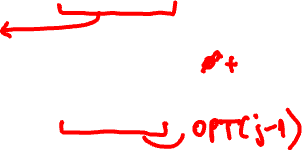 +
OPT(j-1)